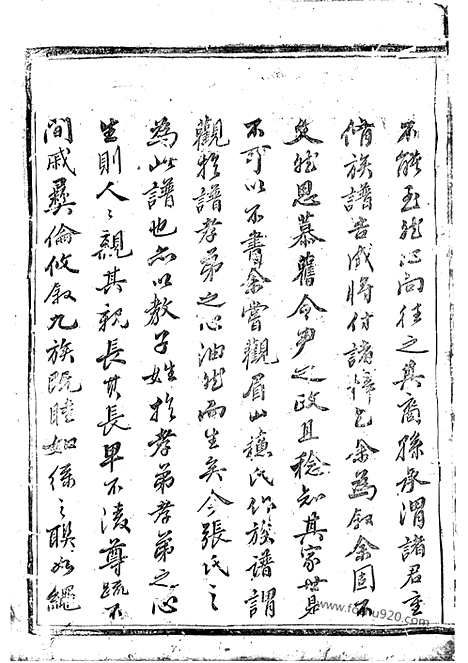 不能至然心向往之其裔孫承渭諸君重
脩族譜告成將付諸梓乞余為叙余固不
文然思慕舊令尹之政且稔知其家世是
不可以不書余嘗觀眉山蘇氏作族譜謂
觀於譜孝弟之心油然而生矣今張氏之
為此譜也亦以教子姓於孝弟孝弟之心
生則人〻親其親長其長卑不凌尊疏不
間戚彝倫攸叙九族既睦如絲之聯如繩